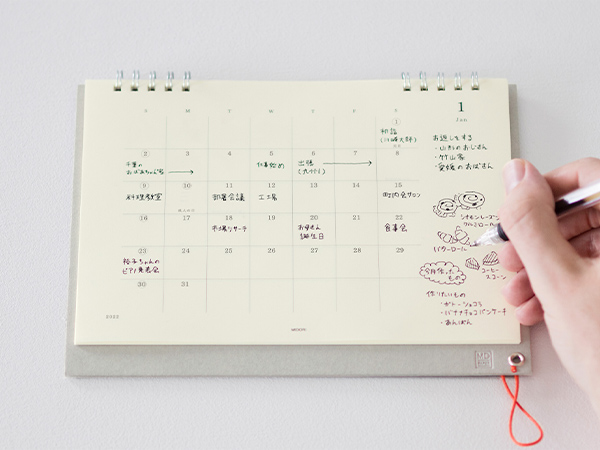 1
Jan
S M T W T F S
1
初詣
(川崎大師)
2 3 4 5 6 7 8
千葉の
おばあちゃん家
仕事始め
出張
(九州)
9 10 11 12 13 14 15
料理教室
部署会議
工場
町内会サロン
16 17 18 19 20 21 22
市場リサーチ
お母さん
誕生日
食事会
23 24 25 26 27 28 29
裕子ちゃんの
ピアノ発表会
30 31
2022
MIDORI
お返しをする
・山形のおじさん
・竹山家
・愛媛のおばさん
シナモンレーズン
クルミロール
バターロール
コーヒー
スコーン
今月作った
もの
作りたいもの
・ガトーショコラ
・バナナチョコパンケーキ
・あんぱん
MD